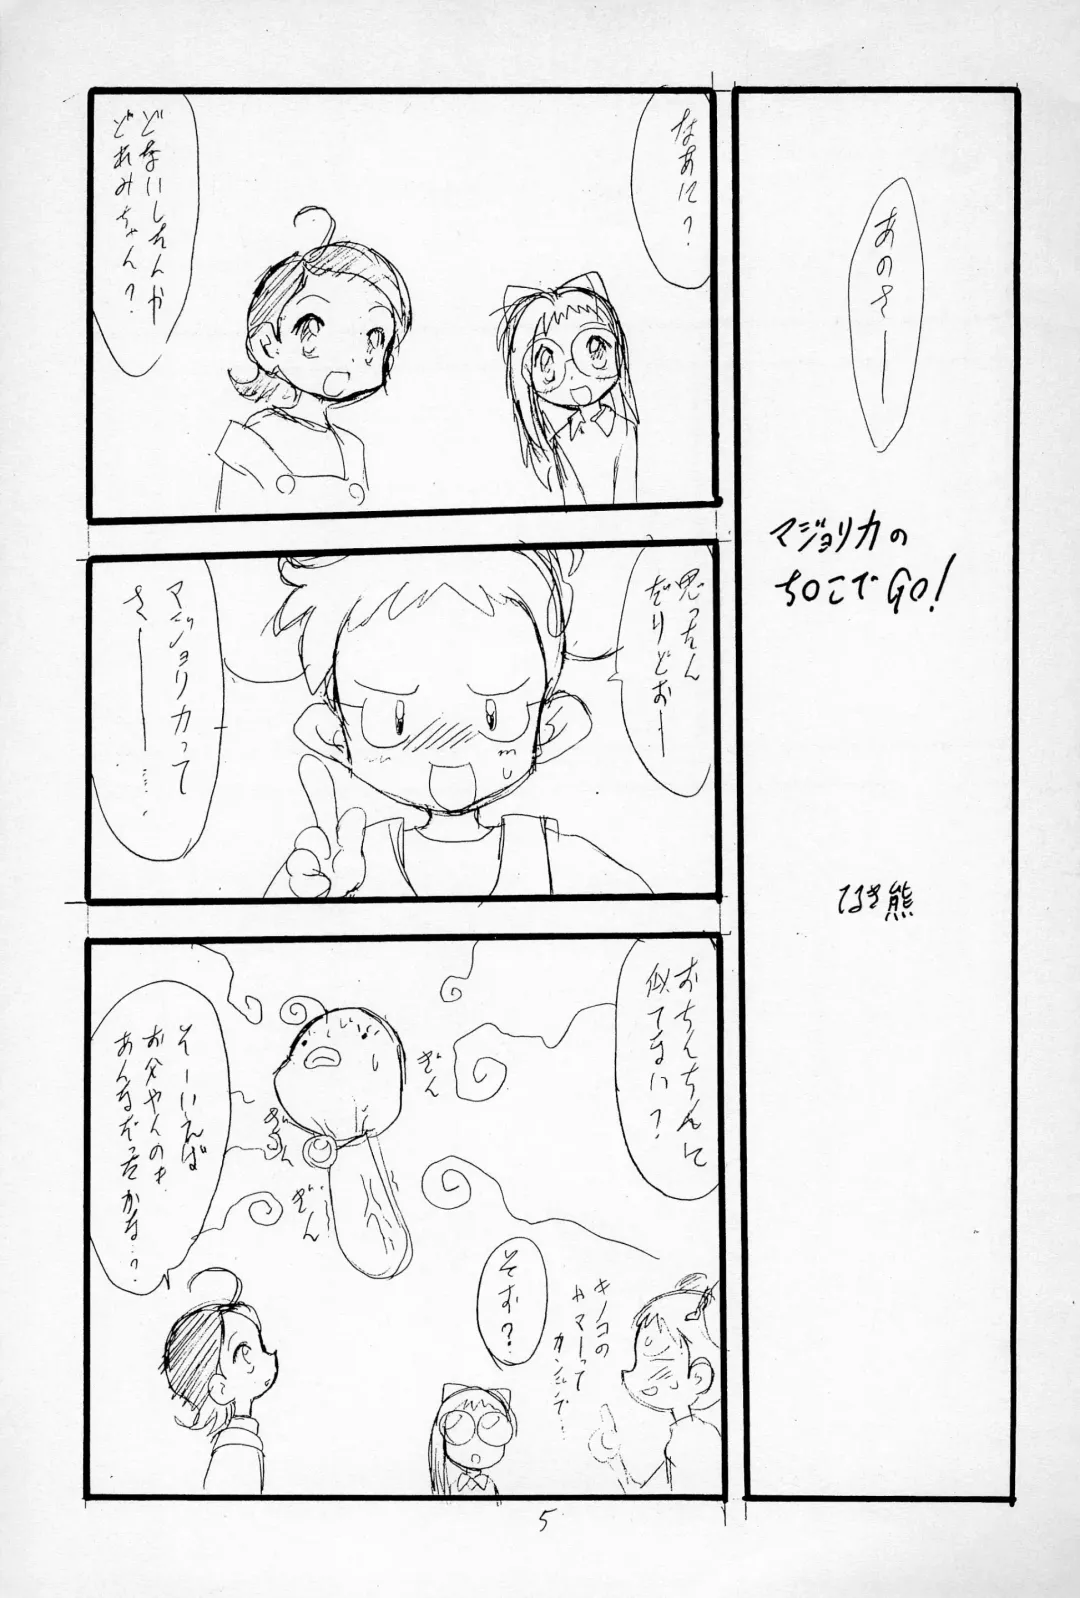 あのさー
マジョリカの
ちOこでGO!
てるき熊
なあに?
どないしたんか
どれみちゃん?
思ったん
だけどおー
マジョリカって
さー……
おちんちんに
似てない?
そーいえば
お父やんのも
あんなだったかな…?
ぎん
ぎん
ぎん
そお?
キノコの
カサーって
カンジで…
5